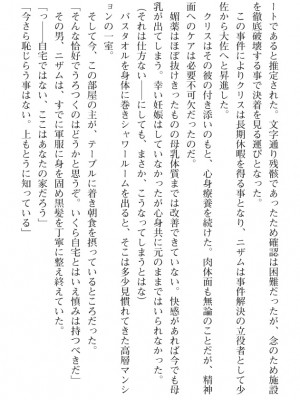 ートであると推定された。文字通り残骸であったため確認は困難だったが、念のため施設
を徹底破壊する事で決着を見る運びとなった。
　この事件によりクリスは長期休暇を得る事となり、ニザムは事件解決の立役者として少
佐から大佐へと昇進した。
　クリスはその彼の付き添いのもと、心身療養を続けた。肉体面も無論のことだが、精神
面へのケアは必要不可欠だったのだ。
　媚薬はほぼ抜けきったものの母乳体質までは改善できていない。快感があれば今でも母
乳が出てしまう。幸い妊娠はしていなかったが心身共に元のままではいられなかった。
（それは仕方ない――にしても、まさか、こうなってしまうとはな）
　バスタオルを身体に巻きシャワールームを出ると、そこは多少見慣れてきた高層マンシ
ョンの一室。
　そして今、この部屋の主が、テーブルに着き朝食を摂っているところだった。
「そんな恰好でうろつくのはどうかと思うぞ。いくら自宅とはいえ慎みは持つべきだ」
　その男、ニザムは、すでに軍服に身を固め黒髪を丁寧に整え終えていた。
「っ…自宅ではない、ここはあなたの家だろう」
「今さら恥じらう事はない。上もとうに知っている」